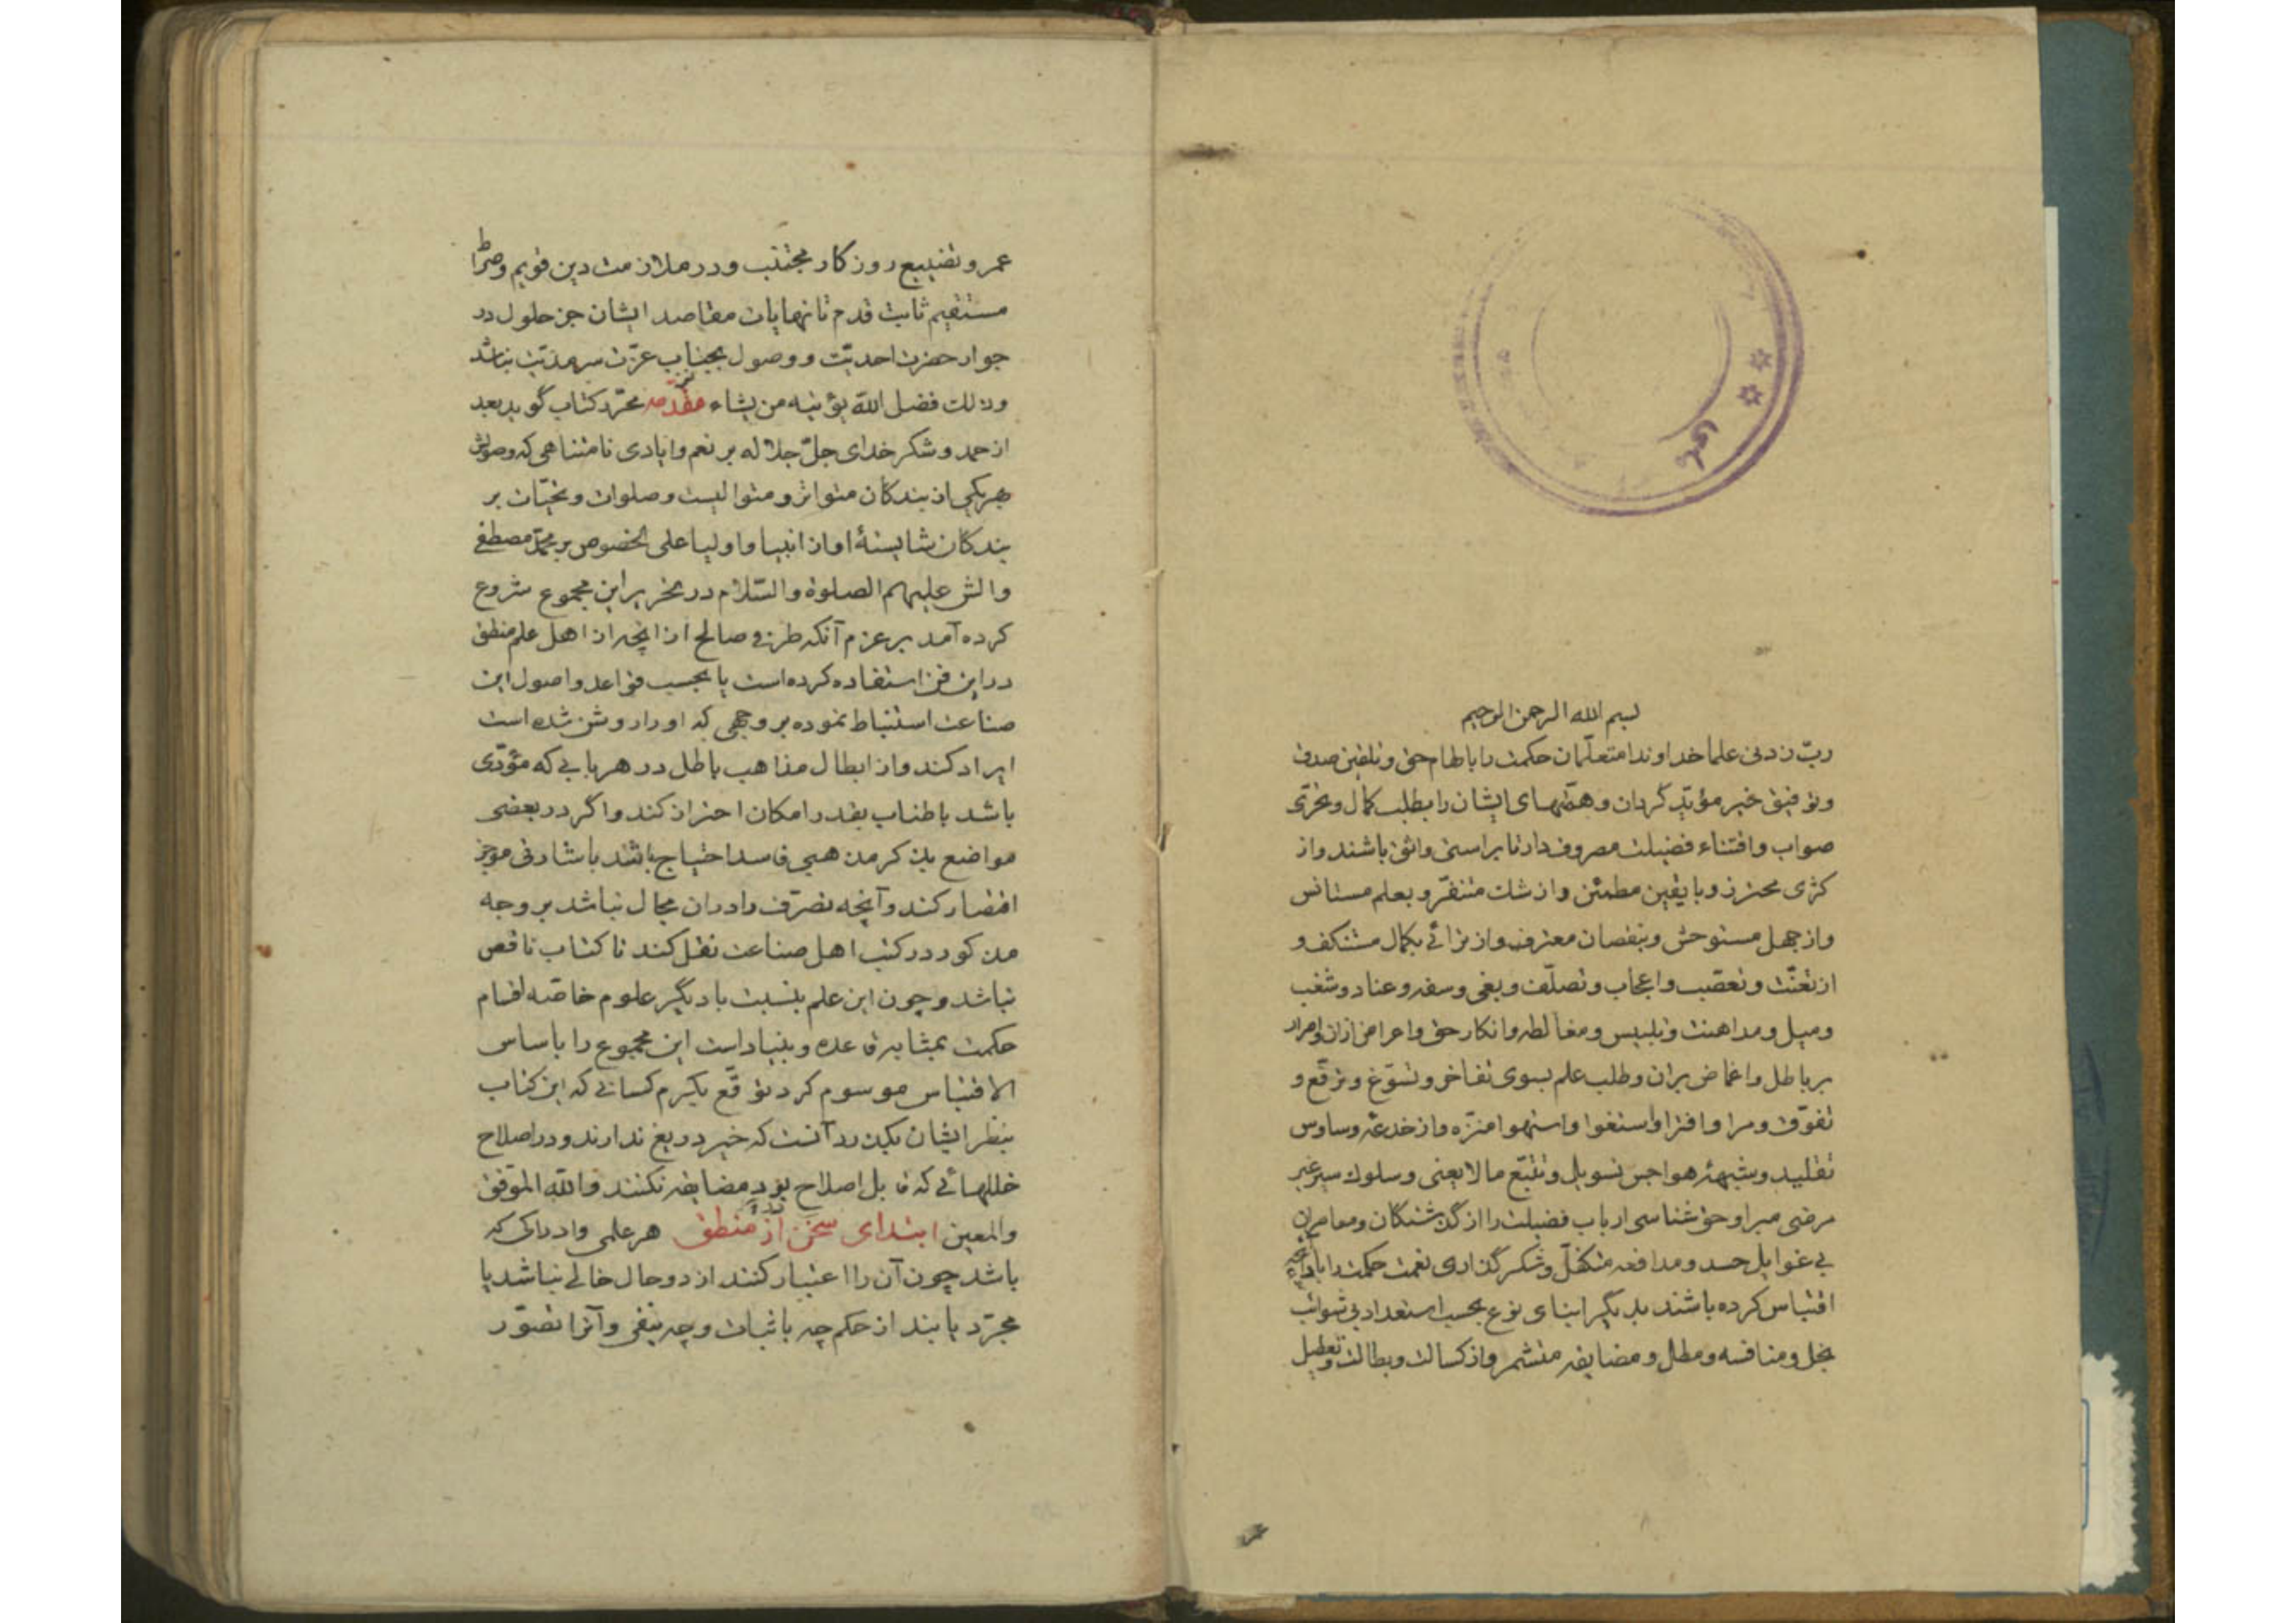 بسم الله الرحمن الرحیم
ربّ زدنی علما خداوندا متعلّمان حکمت را بالهام حق و تلقین صدق
و توفیق خیر مؤیّد گردان و همّتهای ایشان را بطلب کمال و تحرّی
صواب و اقتناء فضیلت مصروف دار تا براستی واثق باشند و از
کژی محترز و با یقین مطمئن و از شک متنفّر و بعلم مستانس
و از جهل مستوحش و بنقصان معترف و از ترائی بکمال مستنکف و
از تعنّت و تعصّب و اعجاب و تصلّف و بغی و سفه و عناد و شغب
و میل و مداهنت و تلبیس و مغالطه و انکار حق و اعراض ازان و اصرار
بر باطل و اغماض بران و طلب علم بسوی تفاخر و تسوّغ و ترفّع و
تفوّق و مرا و افترا و استغوا و استهوا منزّه و از خدعهٔ وساوس
تقلید و شبههٔ هواجس تسویل و تتبّع ما لا یعنی و سلوک سیر غیر
مرضی مبرا و حق شناسی ارباب فضیلت را از گذشتگان و معاصران
بی غوایل حسد و مدافعه متکفّل و شکرگذاری نعمت حکمت را باداء آنچه
اقتباس کرده باشند بدیگر ابنای نوع بحسب استعداد بی شوائب
بخل و منافسه و مطل و مضایقه متشمر و از کسالت و بطالت و تعطیل
عمر و تضییع روزکار مجتنب و در ملازمت دین قویم و صراط
مستقیم ثابت قدم تا نهایات مقاصد ایشان جز حلول در
جوار حضرت احدیّت و وصول بجناب عزّت سرمدیّت نباشد
و ذلک فضل الله یؤتیه من یشاء مقدّمه محرّر کتاب گوید بعد
از حمد و شکر خدای جلّ جلاله بر نعم و ایادی نامتناهی که وصولش
بهریکی از بندکان متواتر و متوالیست و صلوات و تحیّات بر
بندکان شایستهٔ او از انبیا و اولیا علی الخصوص بر محمّد مصطفی
و الش علیهم الصلوة و السّلام در تحریر این مجموع شروع
کرده آمد بر عزم آنکه طرفی صالح از انچه از اهل علم منطق
در این فن استفاده کرده است یا بحسب قواعد و اصول این
صناعت استنباط نموده بر وجهی که او را روشن شده است
ایراد کند و از ابطال مذاهب باطل در هر بابی که مؤدّی
باشد باطناب بقدر امکان احتراز کند و اگر در بعضی
مواضع بذکر مذهبی فاسد احتیاج باشد باشارتی موجز
اقتصار کند و آنچه تصرّف را دران مجال نباشد بر وجه
مذکور در کتب اهل صناعت نقل کند تا کتاب ناقص
نباشد و چون این علم بنسبت با دیگر علوم خاصّه اقسام
حکمت بمثابه قاعده و بنیاد است این مجموع را باساس
الاقتباس موسوم کرد توقّع بکرم کسانی که این کتاب
بنظر ایشان بگذرد آنست که خیر دریغ ندارند و در اصلاح
خللهائی که قابل اصلاح بود مضایقه نکنند و الله الموّفق
و المعین ابتدای سخن از منطق هر علمی و ادراکی که
باشد چون آن را اعتبار کنند از دو حال خالی نباشد یا
مجرّد یابند از حکم چه باثبات و چه بنفی و آنرا تصوّر